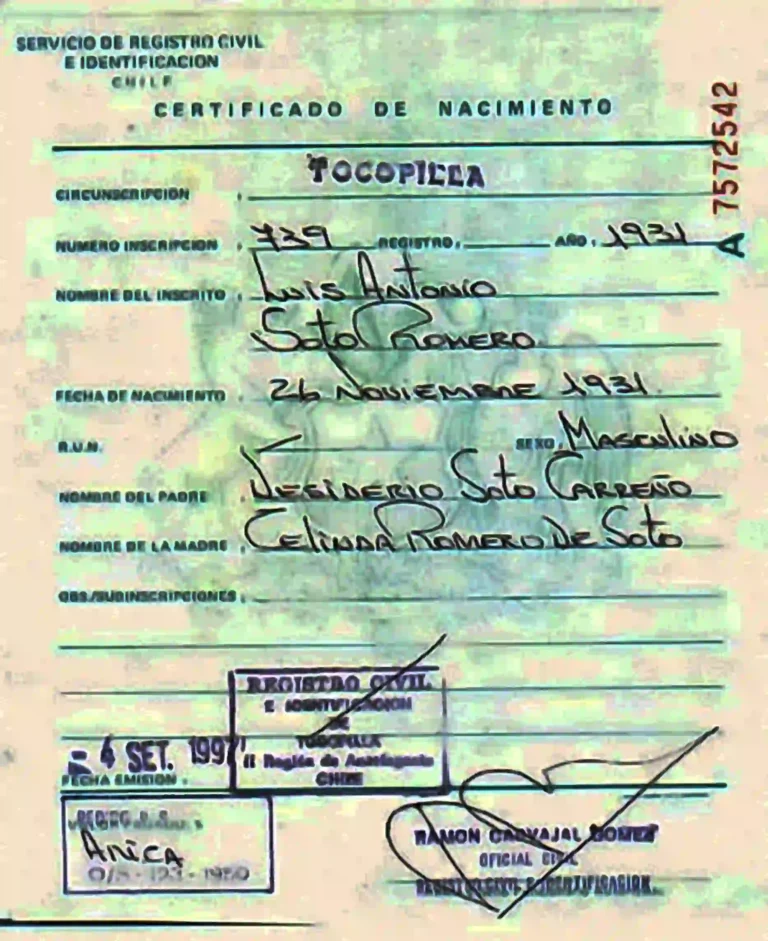 SERVICIO DE REGISTRO CIVIL
E IDENTIFICACION
CHILE
CERTIFICADO DE NACIMIENTO
A 7572542
CIRCUNSCRIPCION : TOCOPILLA
NUMERO INSCRIPCION : 739 REGISTRO : AÑO : 1931
NOMBRE DEL INSCRITO : Luis Antonio
Soto Romero
FECHA DE NACIMIENTO : 26 Noviembre 1931
R.U.N. SEXO : Masculino
NOMBRE DEL PADRE : Desiderio Soto Carreño
NOMBRE DE LA MADRE : Celinda Romero De Soto
OBS./SUBINSCRIPCIONES :
REGISTRO CIVIL
E IDENTIFICACION
DE
TOCOPILLA
II Región de Antofagasta
CHILE
- 4 SET. 1997
FECHA EMISION :
Arica
RAMON CARVAJAL GOMEZ
OFICIAL CIVIL
REGISTRO CIVIL E IDENTIFICACION